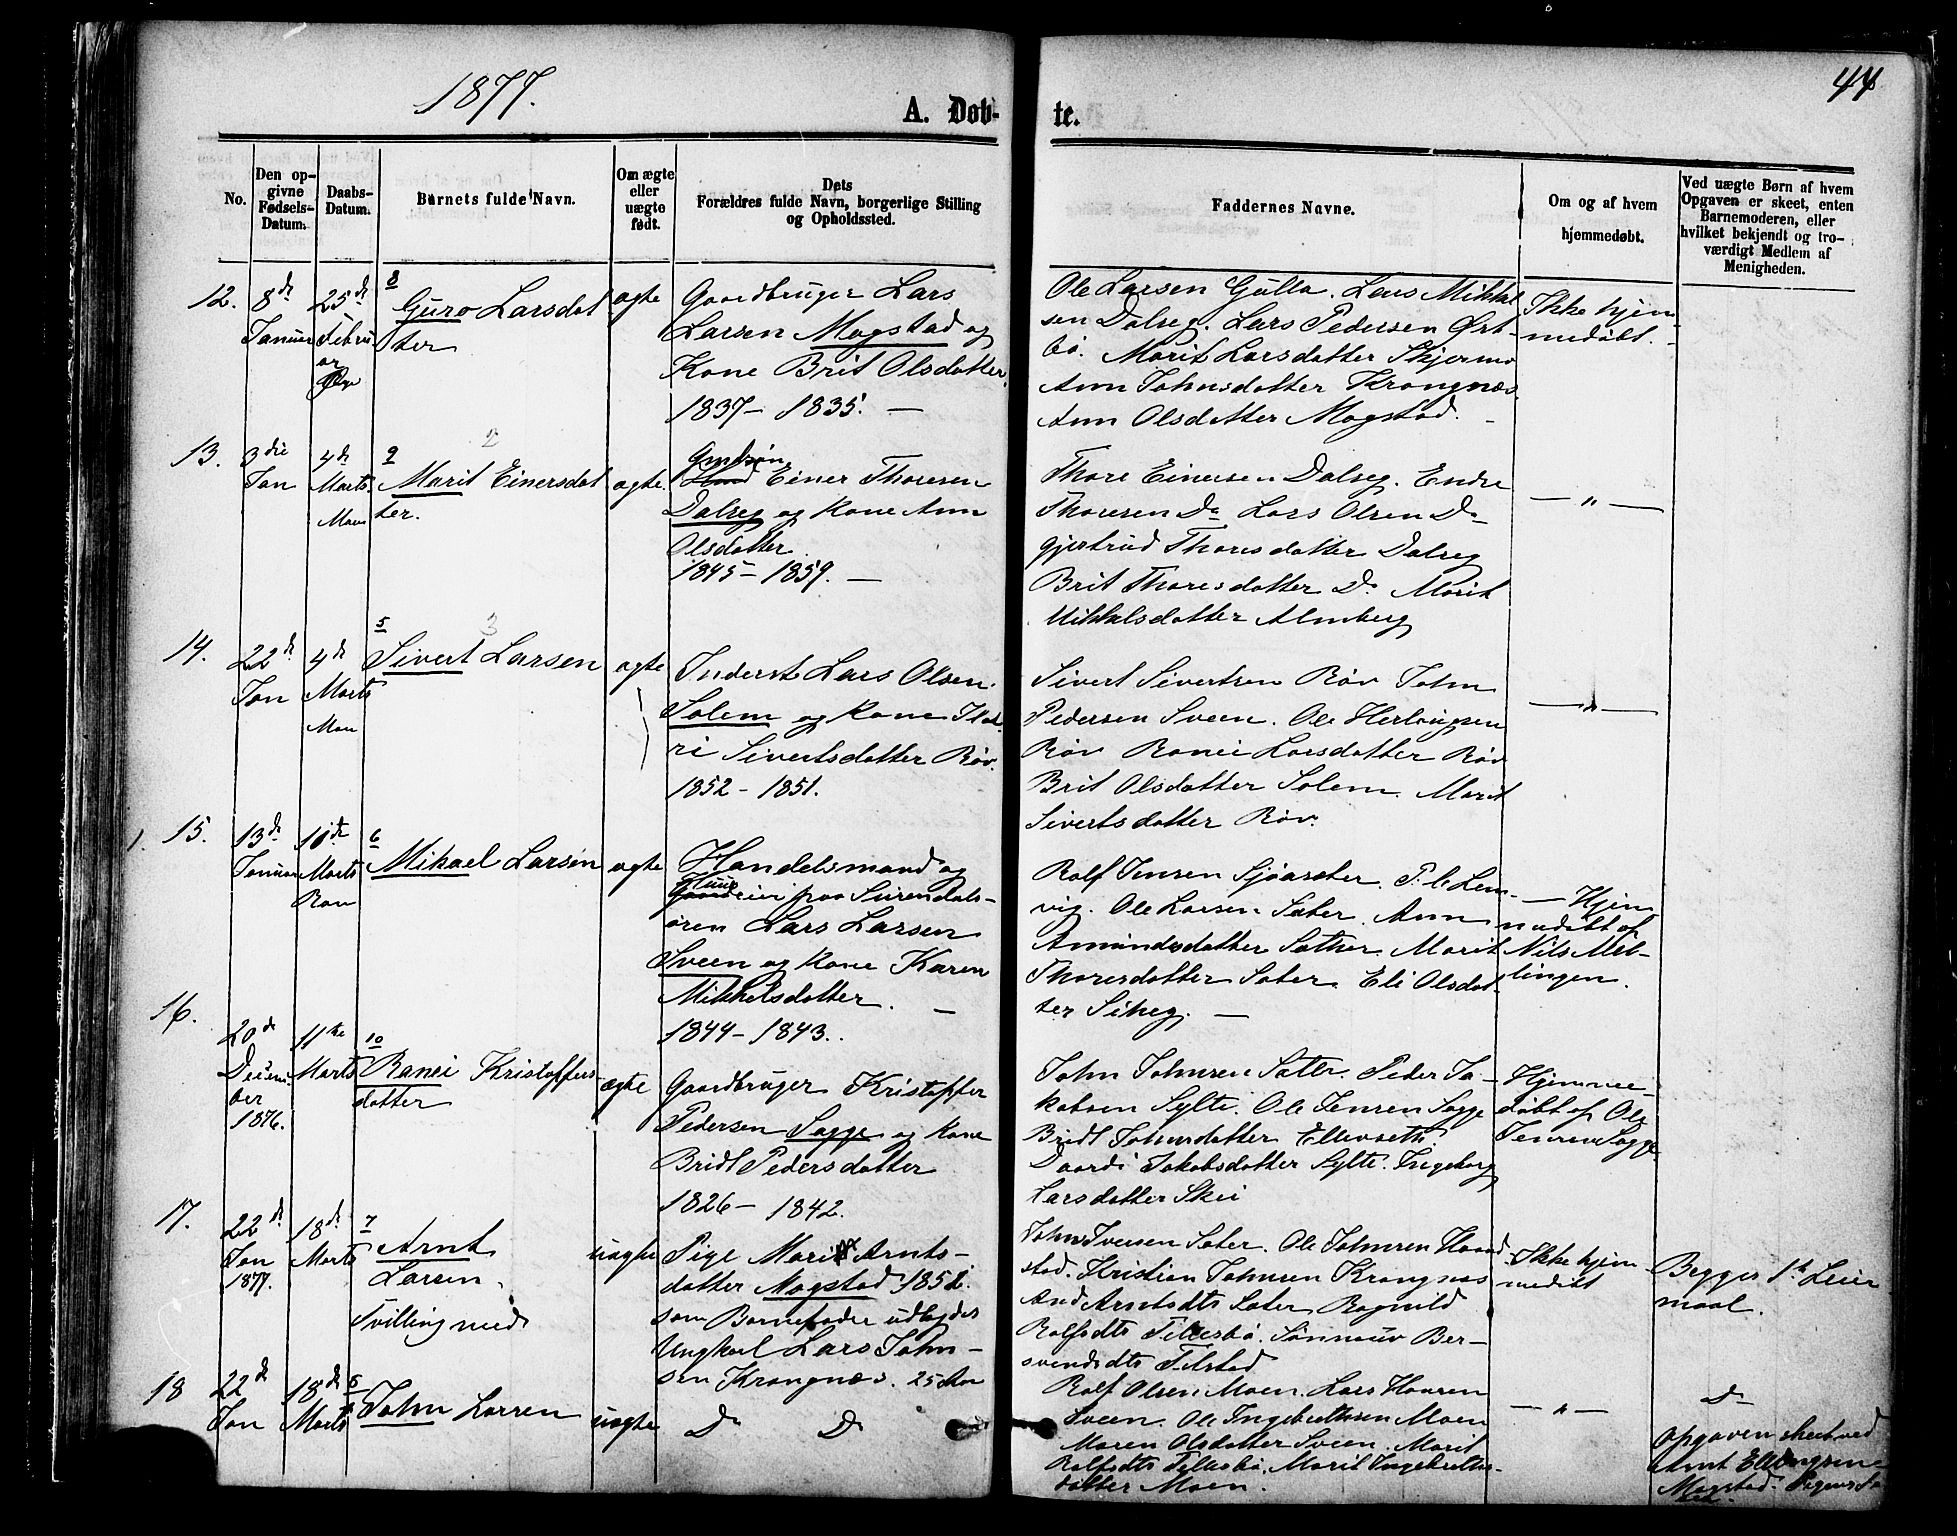 1877.
44
A. Døb-
te.
No.
Den op-
givne
Fødsels-
Datum.
Daabs-
Datum.
Barnets fulde Navn.
Om ægte
eller
uægte
født.
Dets
Forældres fulde Navn, borgerlige Stilling
og Opholdssted.
Faddernes Navne.
Om og af hvem
hjemmedøbt.
Ved uægte Børn af hvem
Opgaven er skeet, enten
Barnemoderen, eller
hvilket bekjendt og tro-
værdigt Medlem af
Menigheden.
12.
8de
Januar
25de
Februar
8
Guro Larsdat
ter
ægte
Gaardbruger Lars
Larsen Mogstad og
Kone Brit Olsdatter.
1837 - 1835. -
Ole Larsen Gulla. Lars Mikkel
sen Dalseg. Lars Pedersen Øst-
bø. Marit Larsdatter Skjermo
Ann Johnsdatter Krangnæs
Ann Olsdatter Mogstad. -
Ikke hjem-
medøbt. -
13.
3die
Jan
4de
Marts
9
Marit Einersdat
ter.
ægte.
Einer Thoresen
Dalseg og Kone Ann
Olsdatter.
1845 - 1859. -
Thore Einersen Dalseg. Endre
Thoresen Do Lars Olsen Do
Gjertrud Thoresdatter Dalseg
Brit Thoresdatter Do. Marit
Mikkelsdatter Almberg
- " -
14.
22de
Jan
4de
Marts
5
Sivert Larsen
ægte
Inderst Lars Olsen
Solem og Kone
ri Sivertsdatter Røv.
1852 - 1851.
Sivert Sivertsen Røv John
Pedersen Sveen. Ole Herlougsen
Røv Ranei Larsdatter Røv
Brit Olsdatter Solem. Marit
Sivertsdatter Røv.
- " -
15.
13de
Januar
11te
Marts
6
Mikael Larsen
ægte
Handelsmand og
Huus
eier paa Surendals-
øren Lars Larsen
Sveen og Kone Karen
Mikkelsdatter. -
1844 - 1843.
Rolf Jensen Sjøasæter.
Ole Larsen Sæter. Ann
Amundsdatter Sæther. Marit
Thoresdatter Sæter. Eli Olsdat-
ter -
- Hjem
medøbt af
Nils Mel-
lingen.
16.
20de
Decem-
ber
1876.
11te
Marts
10
Ranei Kristoffers-
datter
ægte
Gaardbruger Kristoffer
Pedersen Sagge og Kone
Bridt Pedersdatter
1826 - 1842.
John Johnsen Peder Ja-
kobsen Sylte. Ole Jensen Sagge
Bridt Johnsdatter Ellevseth.
Daardi Jakobsdatter Sylte. Ingeborg
Larsdatter Skei
Hjemme
døbt af Ole
Jensen Sagge
17.
22de
Jan
1877.
18de
Marts
7
Arnt
Larsen.
Tvilling med
uægte
Pige Marit Arnts-
datter Mogstad
som Barnefader udlægdes
Ungkarl Lars John-
sen Krangnæs. 25 Aar
John Iversen Sæter. Ole Johnsen Haand
stad. Kristian Johnsen Krangnæs
Arntsdtr Sæter Ragnild
Rolfsdtr Tellesbø. Sønnauv Ber-
svendsdtr Tilstad
Ikke hjem
medøbt
Begges 1ste Leier
maal.
18
22de
Jan
18de
Marts
8
John Larsen
uægte
Do Do
Rolf Olsen Moen. Lars Hansen
Sveen. Ole Ingebrethsen Moen
Maren Olsdatter Sveen. Marit
Rolfsdtr Tellesbø. Marit Ingebreths-
datter Moen.
- " -
Do
Opgaven skeet ved
Arnt Ellingsen
Mogstad. Pigens